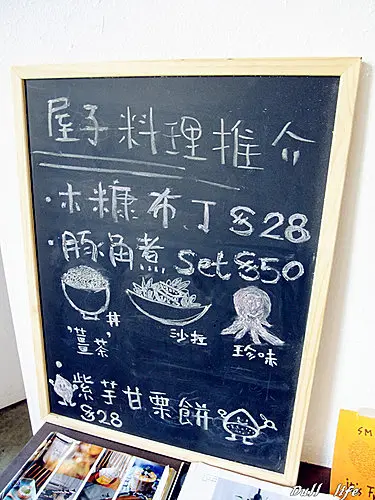 屋子料理推介
·木糠布丁 $28
·豚角煮 Set $50
丼
"薑茶"
沙拉
珍味
·紫芋甘栗餅
$28
SM
Dull lifes